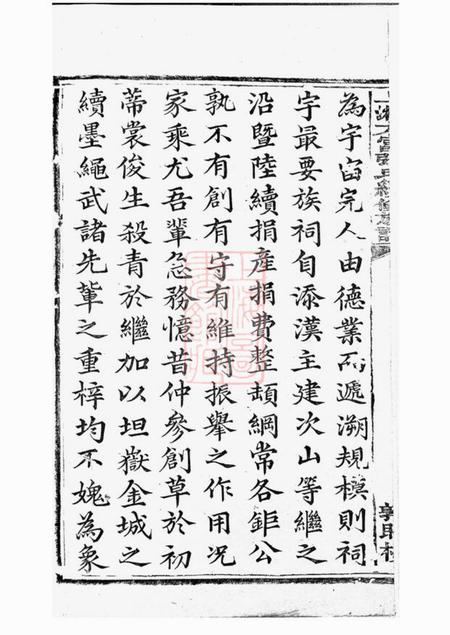 為宇宙完人由德業而遞溯規模則祠
宇最要族祠自添漢主建次山等繼之
沿暨陸續捐產捐費整頓綱常各鉅公
孰不有創有守有維持振舉之作用況
家乘尤吾輩急務憶昔仲參創草於初
蒂裳俊生殺青於繼加以坦嶽金城之
續墨繩武諸先輩之重梓均不媿為象